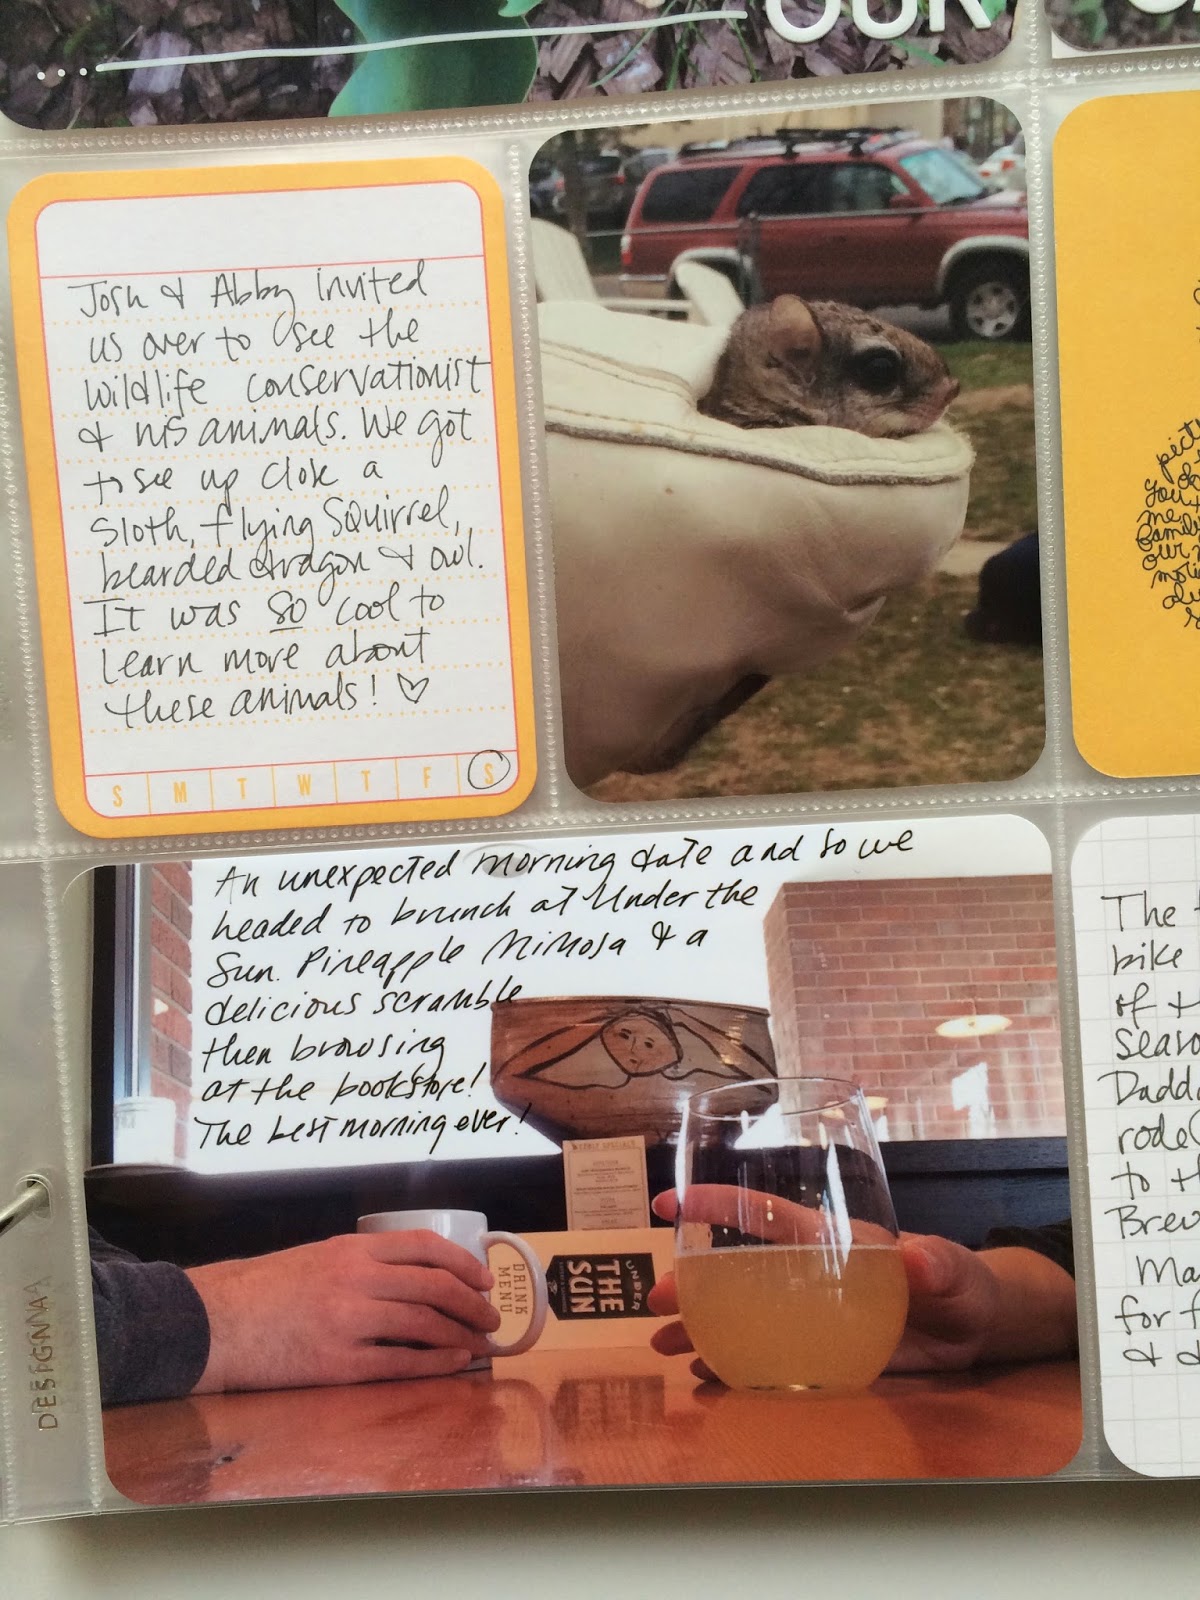 OUR
Josh & Abby invited
us over to see the
wildlife conservationist
& his animals. We got
to see up close a
sloth, flying squirrel,
bearded dragon & owl.
It was so cool to
learn more about
these animals! ♡
S M T W T F S
An unexpected morning date and so we
headed to brunch at Under the
Sun. Pineapple Mimosa & a
delicious scramble
then browsing
at the bookstore!
The best morning ever!
DRINK
MENU
UNDER
THE
SUN
DESIGN A
you
me
our
The
bike
of
Brew
for f
& d